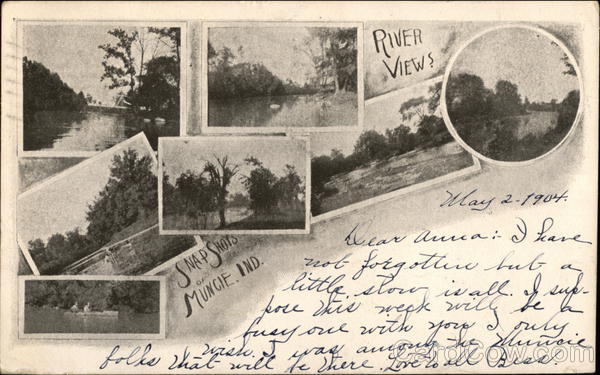 RIVER
VIEWS
SNAP SHOTS
OF
MUNCIE, IND.
May 2-1904.
Dear Anna:- I have
not forgotten but a
little slow is all. I sup-
pose this week will be a
busy one with you I only
wish I was among the Muncie
folks that will be there. Love to all Bess.
CardCow.com